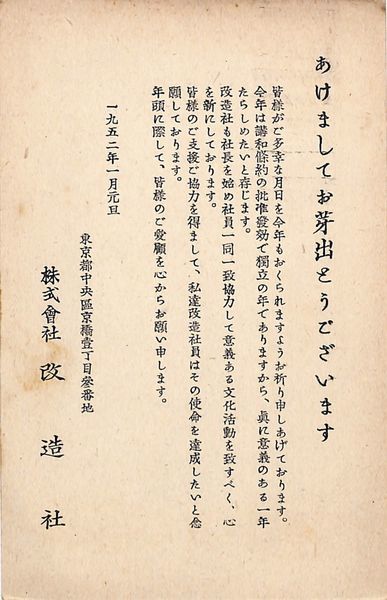 あけましてお芽出とうございます
皆様がご多幸な月日を今年もおくられますようお祈り申しあげております。
今年は講和條約の批准發効で獨立の年でありますから、眞に意義のある一年
たらしめたいと存じます。
改造社も社長を始め社員一同一致協力して意義ある文化活動を致すべく、心
を新にしております。
皆様のご支援ご協力を得まして、私達改造社員はその使命を達成したいと念
願しております。
年頭に際して、皆様のご愛顧を心からお願い申します。
一九五二年一月元旦
東京都中央區京橋壹丁目參番地
株式會社 改造社